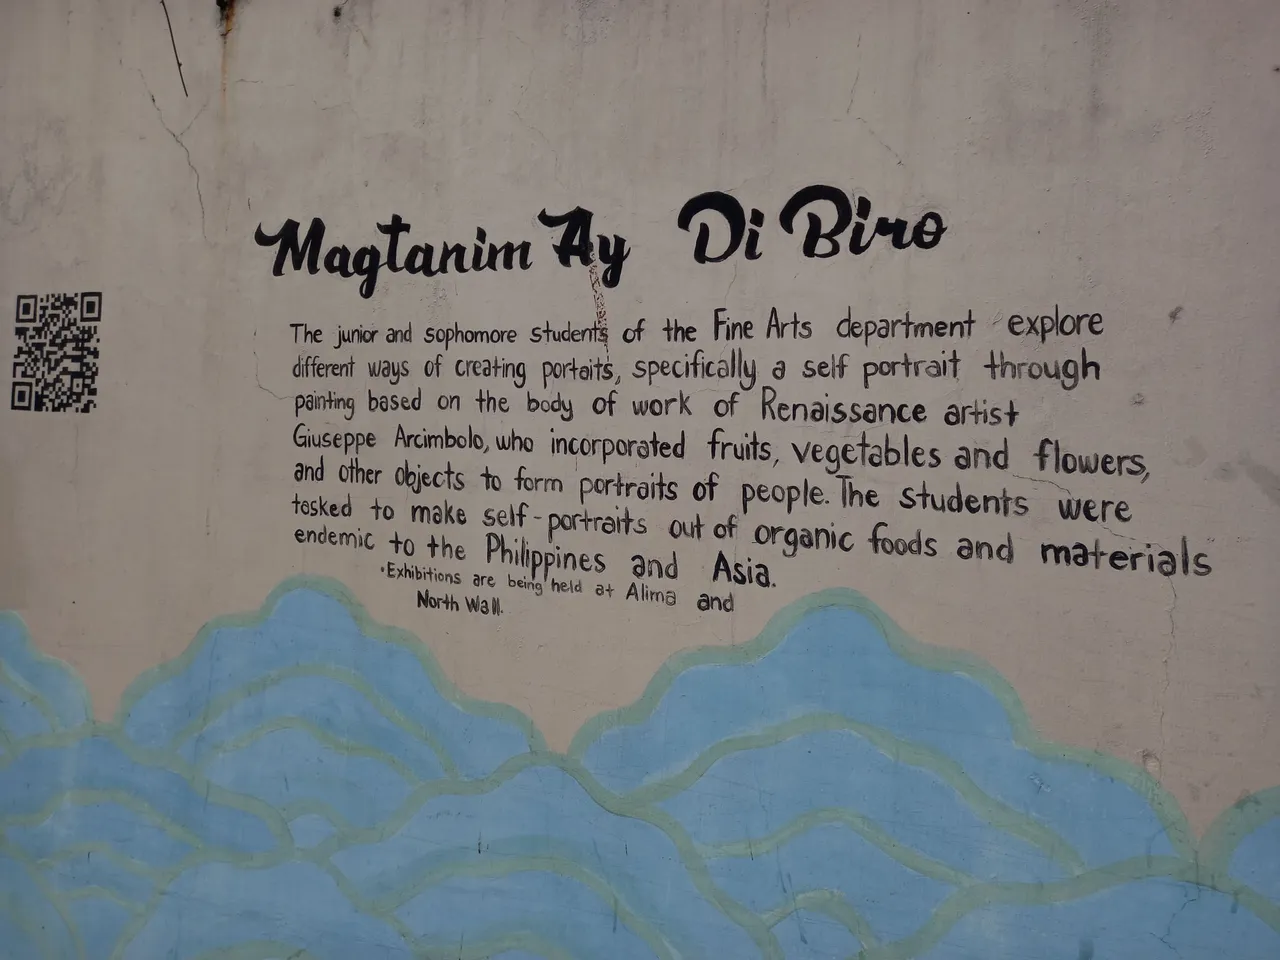 Magtanim Ay Di Biro
The junior and sophomore students of the Fine Arts department explore
different ways of creating portaits, specifically a self portrait through
painting based on the body of work of Renaissance artist
Giuseppe Arcimbolo, who incorporated fruits, vegetables and flowers,
and other objects to form portraits of people. The students were
tasked to make self-portraits out of organic foods and materials
endemic to the Philippines and Asia.
•Exhibitions are being held at Alima and
North Wall.